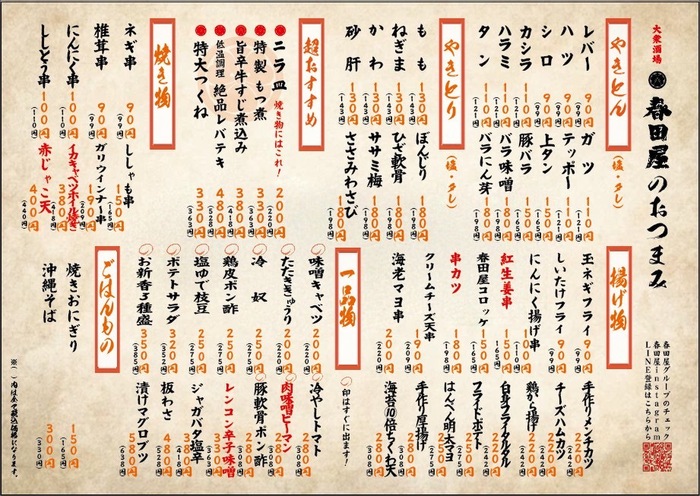 大衆酒場
春田屋のおつまみ
春田屋グループのチェック
春田屋instagram
LINE登録はこちらから
やきとん
(塩・タレ)
レバー 90円 (99円)
ハツ 90円 (99円)
シロ 90円 (99円)
カシラ 110円 (121円)
ハラミ 110円 (121円)
タン 110円 (121円)
ガツ
テッポー
上タン 150円 (165円)
豚バラ 150円 (165円)
バラ味噌 180円 (198円)
バラにん芽 180円 (198円)
やきとり
(塩・タレ)
もも 130円 (143円)
ねぎま 130円 (143円)
かわ 130円 (143円)
砂肝 130円 (143円)
ぼんじり 180円 (198円)
ひざ軟骨 180円 (198円)
ササミ梅 180円 (198円)
ささみわさび 180円 (198円)
超おすすめ
ニラ皿 焼き物にはこれ! 200円 (220円)
特製もつ煮 330円 (363円)
旨辛牛すじ煮込み 380円 (418円)
低温調理 絶品レバテキ 480円
特大つくね 330円 (363円)
焼き物
ネギ串 90円 (99円)
椎茸串 90円 (99円)
にんにく串 100円 (110円)
ししとう串 100円 (110円)
ししゃも串 150円 (165円)
ガリウインナー串 190円 (209円)
イカキャベツホイル焼き 380円
赤じゃこ天 400円 (440円)
揚げ物
玉ネギフライ 90円 (99円)
しいたけフライ 90円 (99円)
にんにく揚げ串 100円 (110円)
紅生姜串 150円 (165円)
春田屋コロッケ 150円 (165円)
串カツ 180円
クリームチーズ天串 190円 (209円)
海老マヨ串 200円 (220円)
手作りメンチカツ 220円 (242円)
チーズハムカツ 220円 (242円)
鶏から揚げ
白身フライタルタル
フライドポテト 250円 (275円)
はんぺん明太マヨ 250円 (275円)
手作り厚揚げ
海苔10倍ちくわ天 280円 (308円)
一品物
印はすぐに出ます!
味噌キャベツ 200円 (220円)
たたききゅうり 200円 (220円)
冷奴
鶏皮ポン酢 250円 (275円)
塩ゆで枝豆 250円 (275円)
ポテトサラダ 320円 (352円)
お新香3種盛 350円 (385円)
冷やしトマト 280円 (308円)
肉味噌ピーマン 280円 (308円)
豚軟骨ポン酢 280円 (308円)
レンコン辛子味噌
ジャガバタ塩辛 380円
板わさ
漬けマグロブツ 580円 (638円)
ごはんもの
焼きおにぎり 150円 (165円)
沖縄そば 300円 (330円)
※( )内は全て税込価格になります。